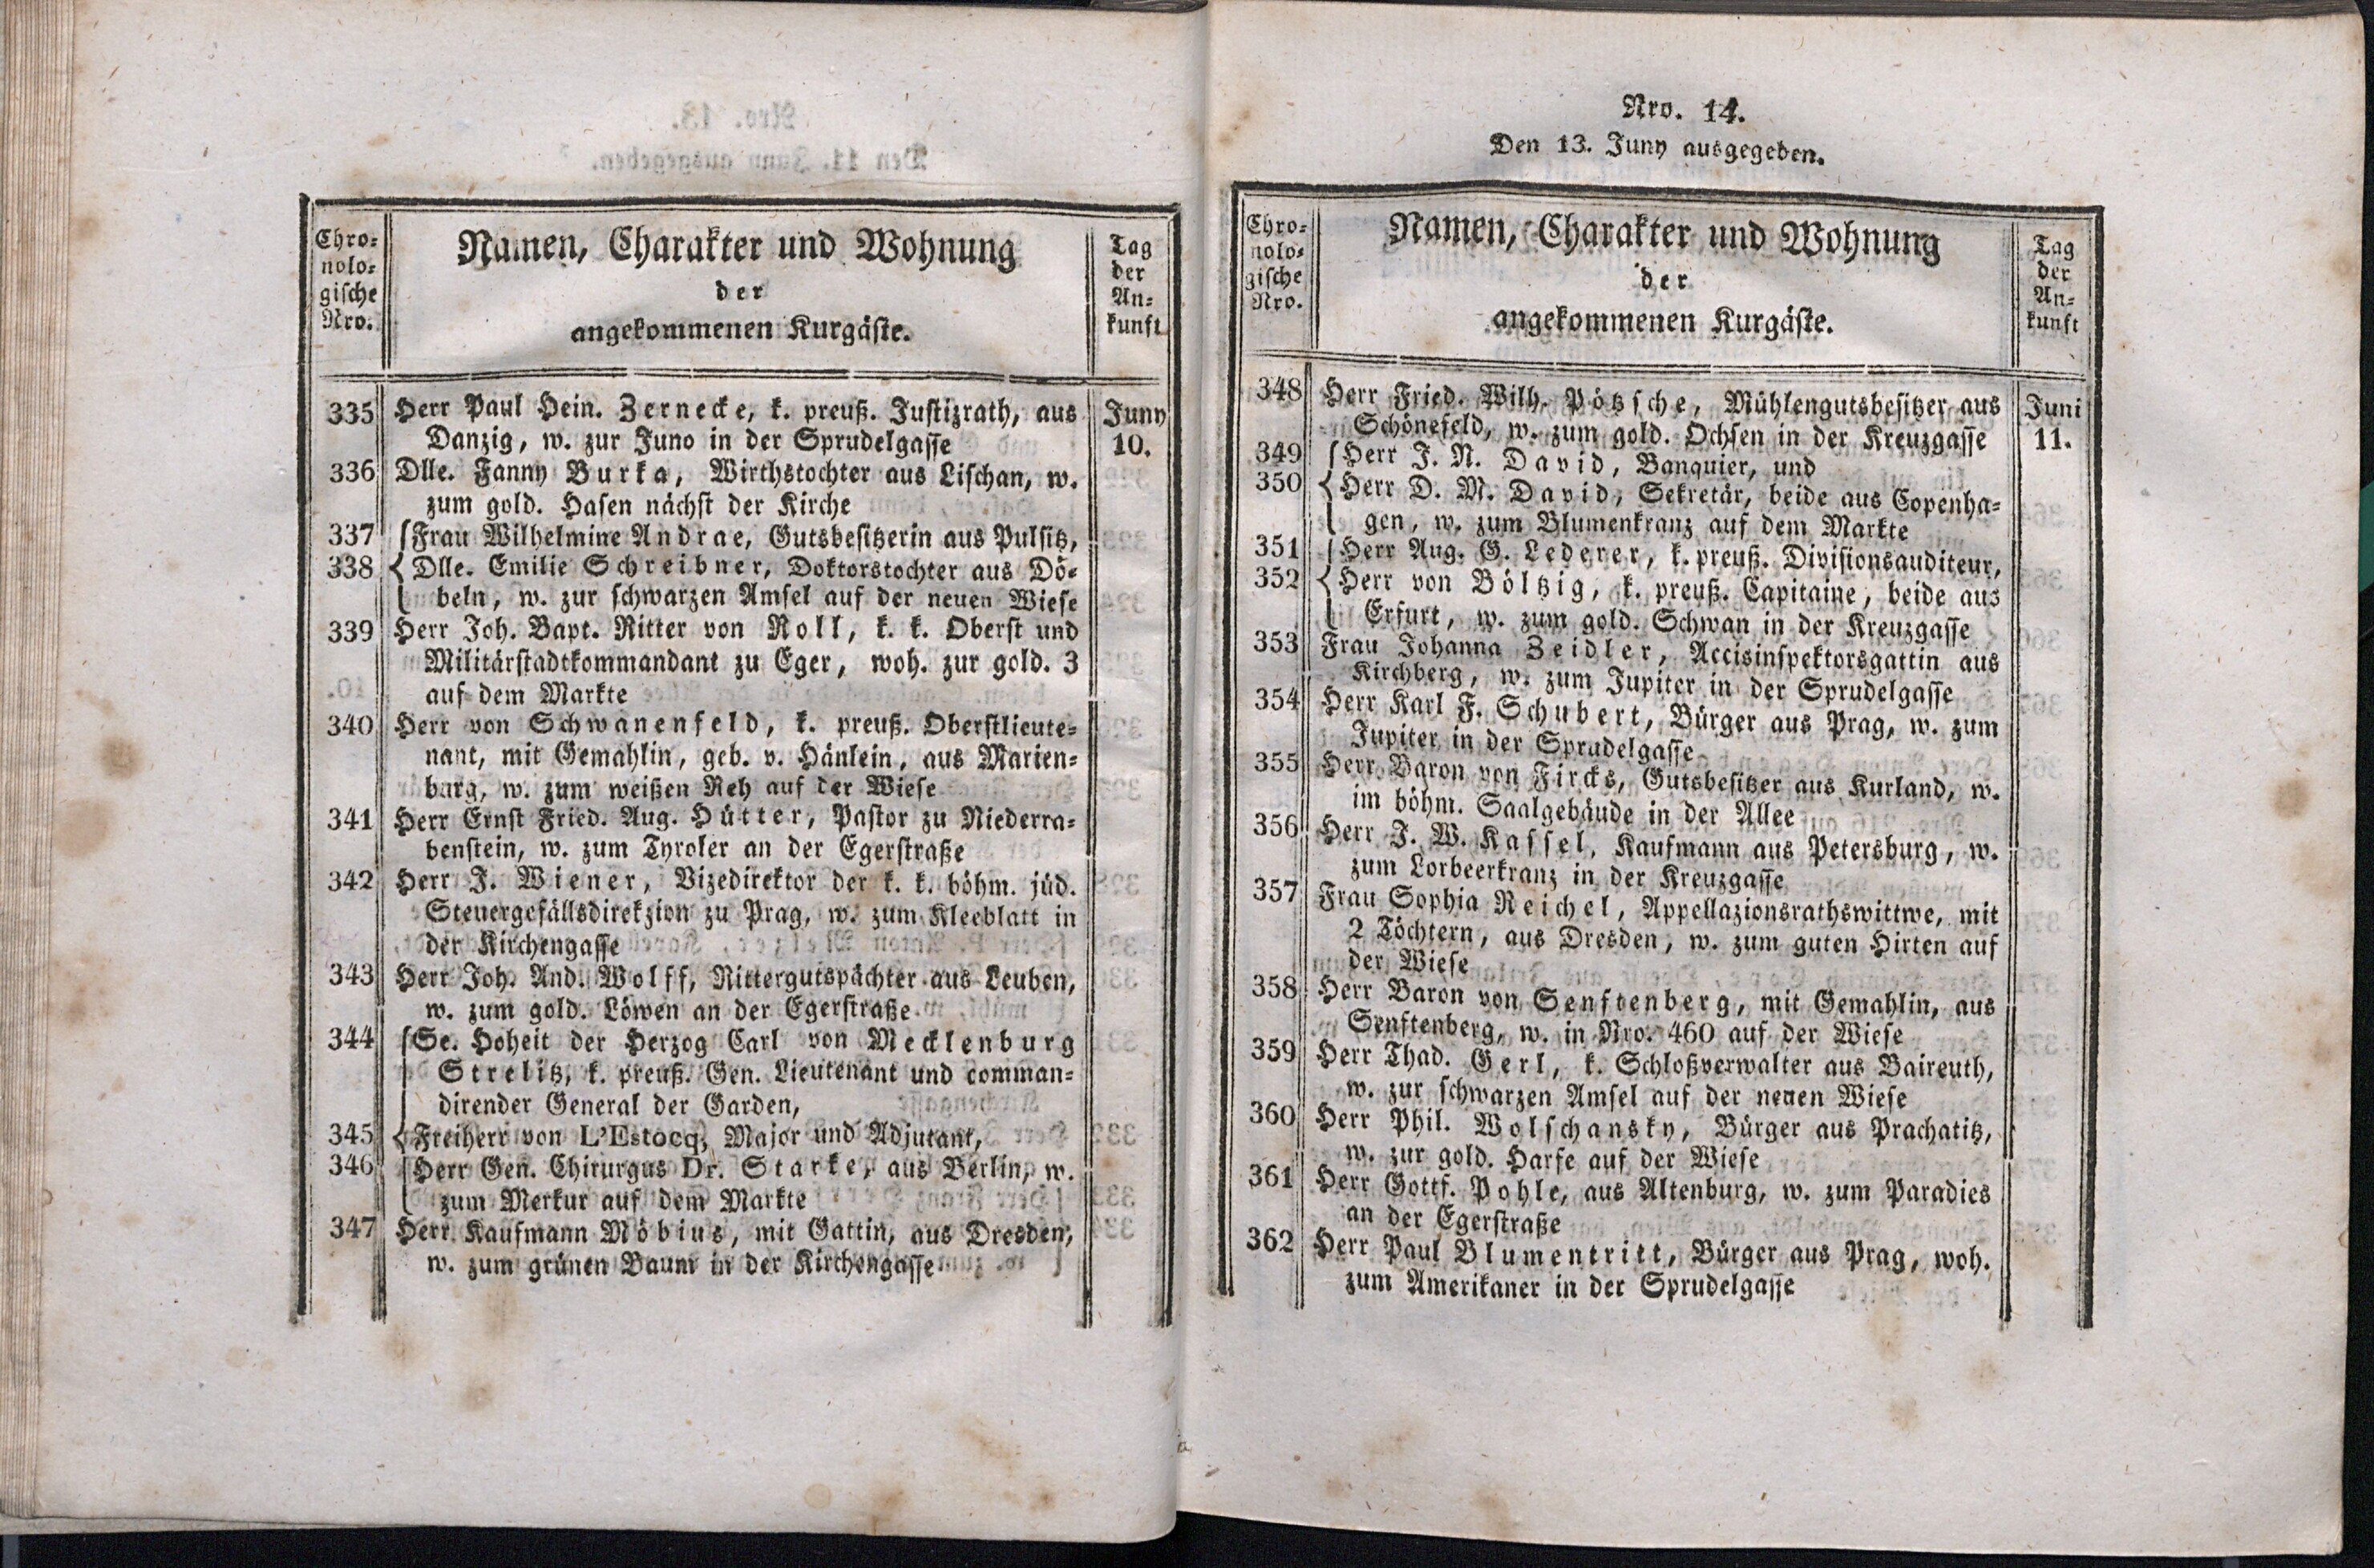 Chro-
nolo-
gische
Nro.
Namen, Charakter und Wohnung
der
angekommenen Kurgäste.
Tag
der
An-
kunft
335 Herr Paul Hein. Zernecke, k. preuß. Justizrath, aus
Danzig, w. zur Juno in der Sprudelgasse
Juny
10.
336 Dlle. Fanny Burka, Wirthstochter aus Lischan, w.
zum gold. Hasen nächst der Kirche
337 Frau Wilhelmine Andrae, Gutsbesitzerin aus Pulsitz,
338 Dlle. Emilie Schreibner, Doktorstochter aus Dö-
beln, w. zur schwarzen Amsel auf der neuen Wiese
339 Herr Joh. Bapt. Ritter von Roll, k. k. Oberst und
Militärstadtkommandant zu Eger, woh. zur gold. 3
auf dem Markte
340 Herr von Schwanenfeld, k. preuß. Oberstlieute-
nant, mit Gemahlin, geb. v. Hänlein, aus Marien-
burg, w. zum weißen Reh auf der Wiese
341 Herr Ernst Fried. Aug. Hütter, Pastor zu Niederra-
benstein, w. zum Tyroler an der Egerstraße
342 Herr J. Wiener, Vizedirektor der k. k. böhm. jüd.
Steuergefällsdirekzion zu Prag, w. zum Kleeblatt in
der Kirchengasse
343 Herr Joh. And. Wolff, Rittergutspächter aus Leuben,
w. zum gold. Löwen an der Egerstraße
344 Se. Hoheit der Herzog Carl von Mecklenburg
Strelitz, k. preuß. Gen. Lieutenant und comman-
dirender General der Garden,
345 Freiherr von L'Estocq, Major und Adjutant,
346 Herr Gen. Chirurgus Dr. Starke, aus Berlin, w.
zum Merkur auf dem Markte
347 Herr Kaufmann Möbius, mit Gattin, aus Dresden,
w. zum grünen Baum in der Kirchengasse
Nro. 14.
Den 13. Juny ausgegeben.
Chro-
nolo-
gische
Nro.
Namen, Charakter und Wohnung
der
angekommenen Kurgäste.
Tag
der
An-
kunft
348 Herr Fried. Wilh. Pötzsche, Mühlengutsbesitzer aus
Schönefeld, w. zum gold. Ochsen in der Kreuzgasse
Juni
11.
349 Herr J. N. David, Banquier, und
350 Herr D. M. David, Sekretär, beide aus Copenha-
gen, w. zum Blumenkranz auf dem Markte
351 Herr Aug. G. Lederer, k. preuß. Divisionsauditeur,
352 Herr von Böltzig, k. preuß. Capitaine, beide aus
Erfurt, w. zum gold. Schwan in der Kreuzgasse
353 Frau Johanna Zeidler, Accisinspektorsgattin aus
Kirchberg, w. zum Jupiter in der Sprudelgasse
354 Herr Karl F. Schubert, Bürger aus Prag, w. zum
Jupiter in der Sprudelgasse
355 Herr Baron von Fircks, Gutsbesitzer aus Kurland, w.
im böhm. Saalgebäude in der Allee
356 Herr J. W. Kassel, Kaufmann aus Petersburg, w.
zum Lorbeerkranz in der Kreuzgasse
357 Frau Sophia Reichel, Appellazionsrathswittwe, mit
2 Töchtern, aus Dresden, w. zum guten Hirten auf
der Wiese
358 Herr Baron von Senftenberg, mit Gemahlin, aus
Senftenberg, w. in Nro. 460 auf der Wiese
359 Herr Thad. Gerl, k. Schloßverwalter aus Baireuth,
w. zur schwarzen Amsel auf der neuen Wiese
360 Herr Phil. Wolschansky, Bürger aus Prachatitz,
w. zur gold. Harfe auf der Wiese
361 Herr Gottf. Pohle, aus Altenburg, w. zum Paradies
an der Egerstraße
362 Herr Paul Blumentritt, Bürger aus Prag, woh.
zum Amerikaner in der Sprudelgasse